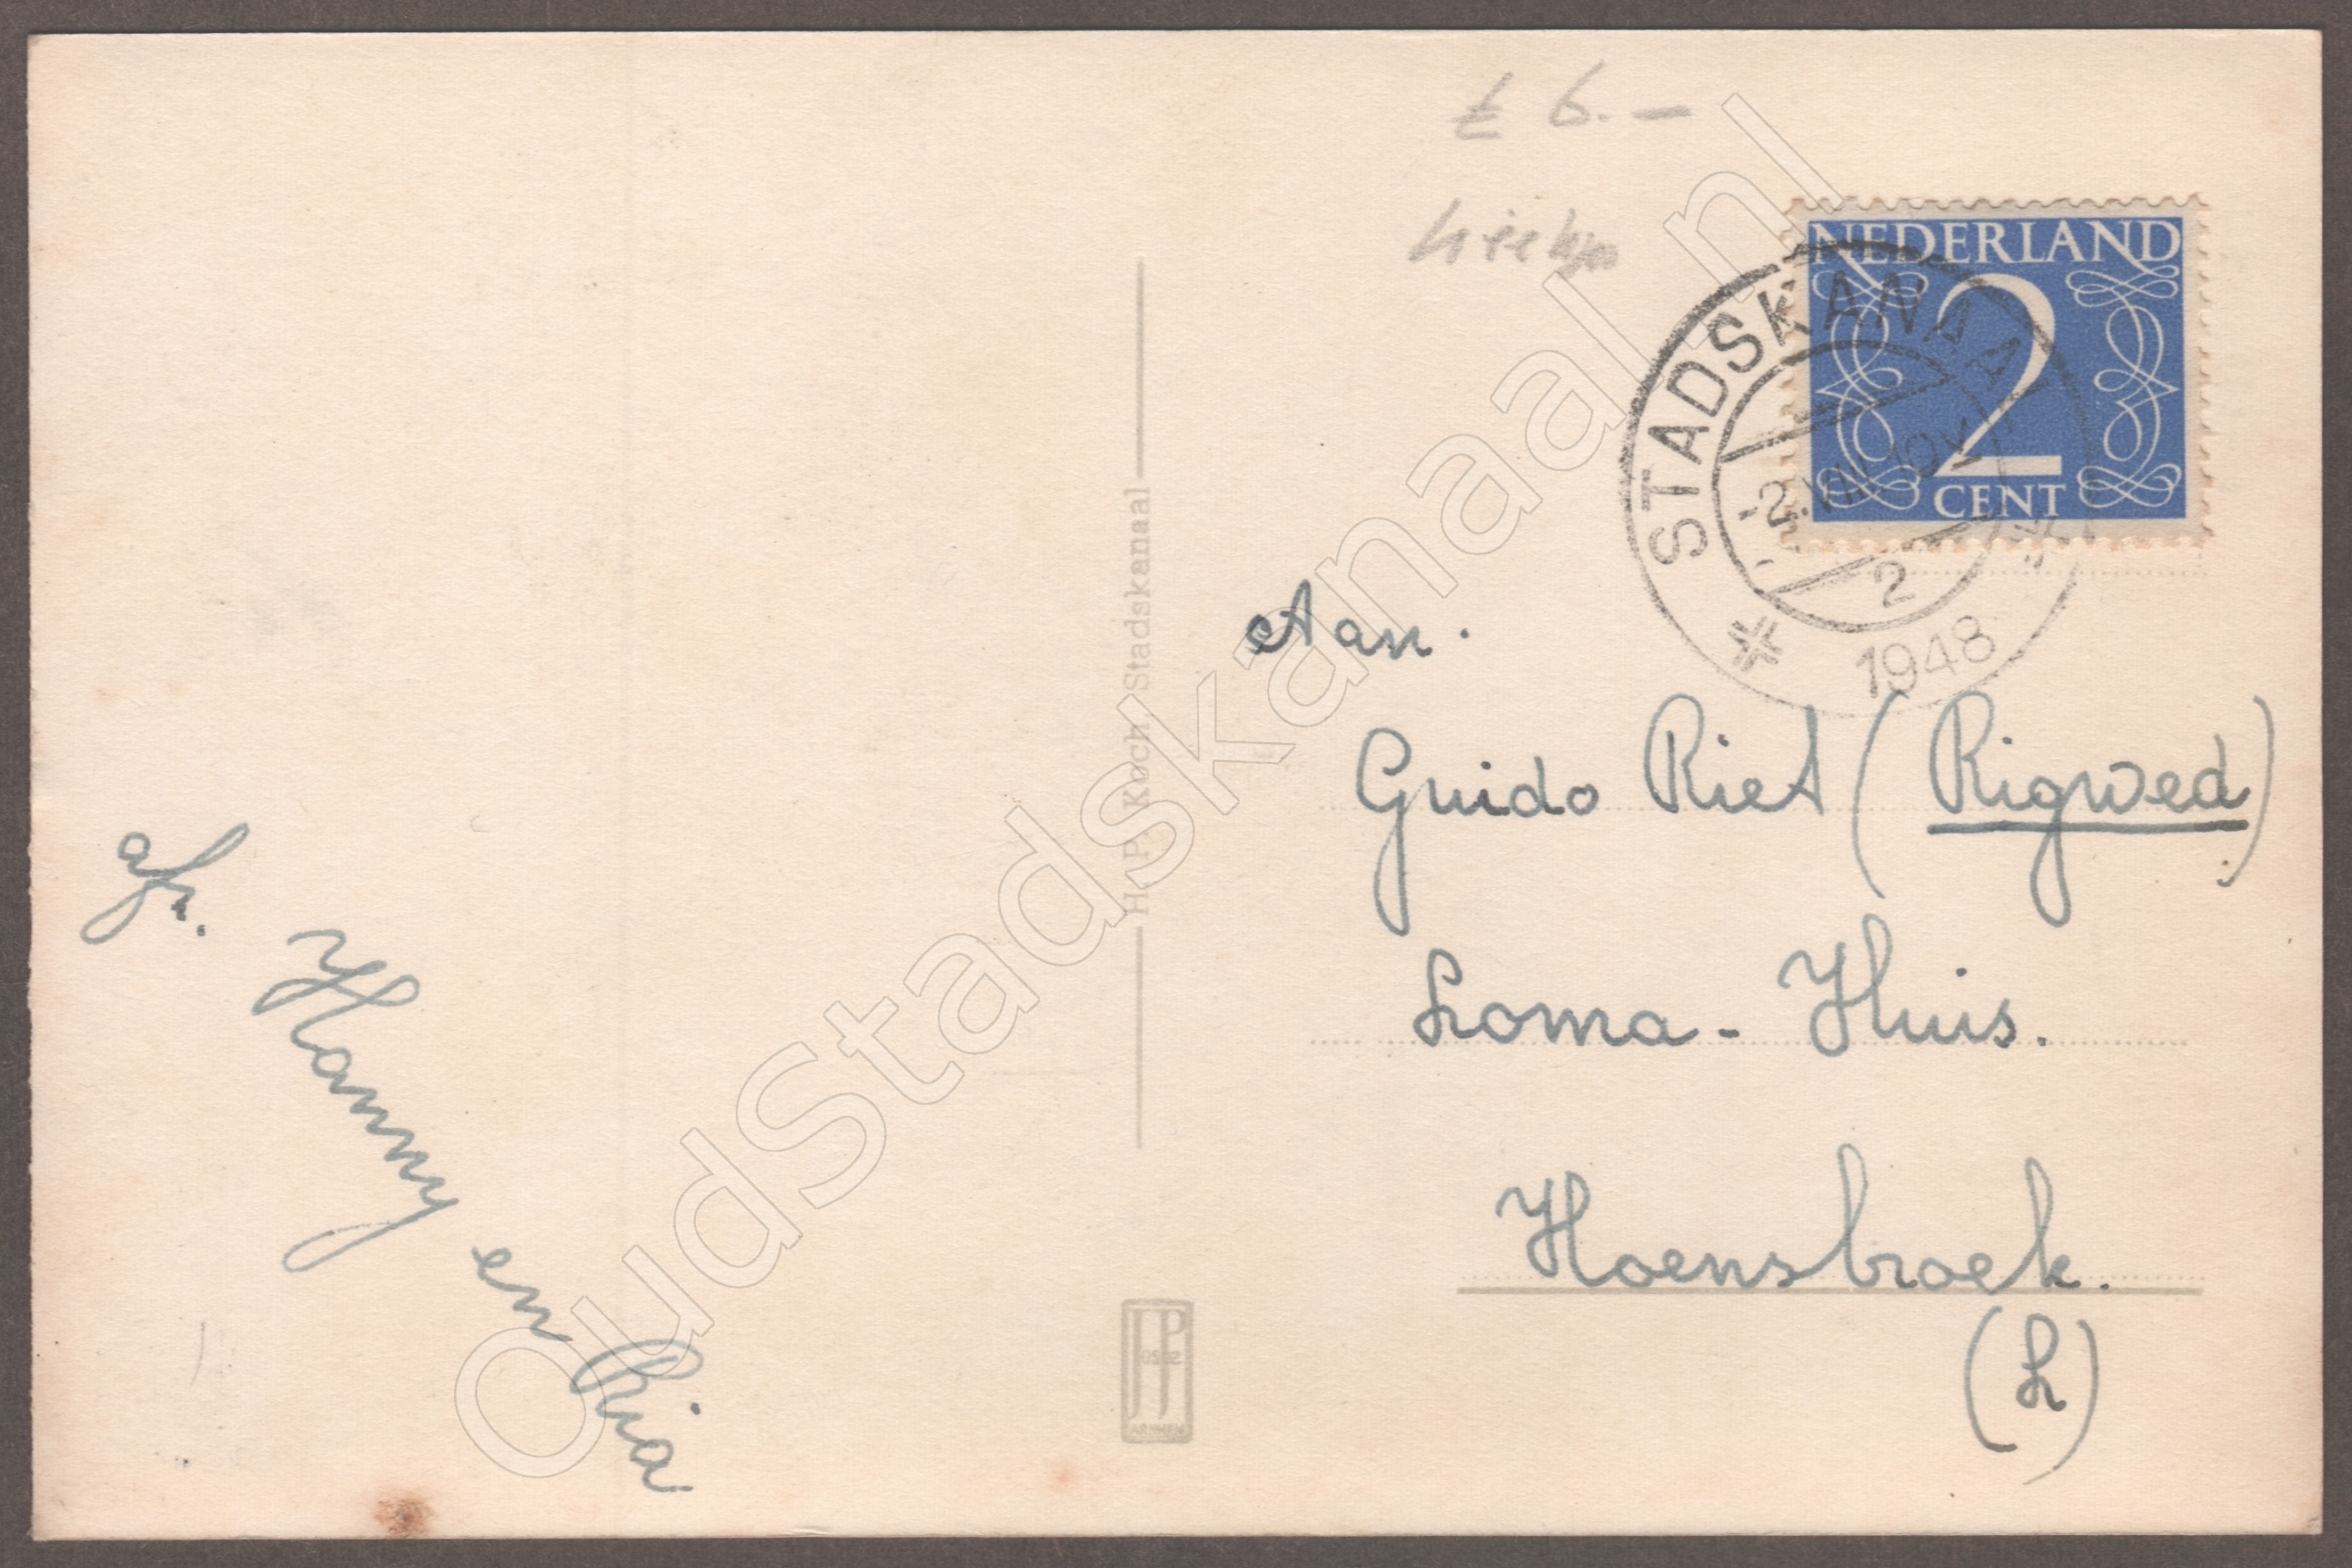 £ 6.-
NEDERLAND
2
CENT
STADSKANAAL
-2.VIII.10V
2
1948
afz. Hanny en Ria
H. P. Koch, Stadskanaal
JP
ARNHEM
Aan.
Guido Riet (Rigwed)
Loma-Huis.
Hoensbroek.
(L)
OudStadskanaal.nl